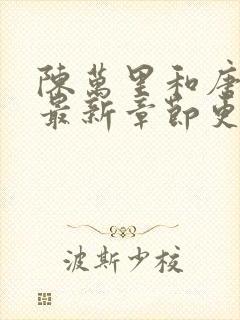 陳萬里和唐
最新章節更
波斯少校